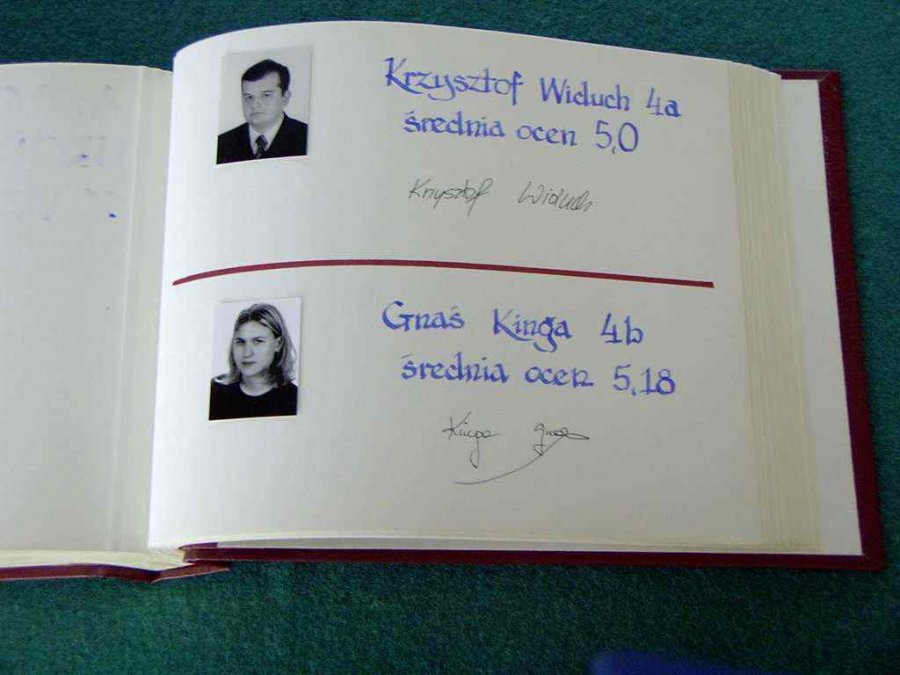 Krzysztof Widuch 4a
średnia ocen 5,0
Krzysztof Widuch
Gnaś Kinga 4b
średnia ocen 5,18
Kinga Gnaś